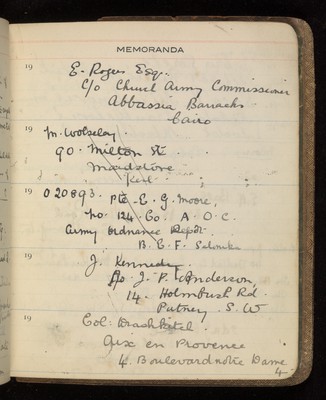 MEMORANDA
19
E. Rogers Esq.
C/o Church Army Commissioner
Abbassia Barracks
Cairo
19
M. Wolseley.
90. Milton St.
Maidstone.
Kent.
19
020893. Pte. E. G. Moore,
No. 124. Co. A. O. C.
Army Ordnance Depôt.
B. E. F. Salonika
19
J. Kennedy.
C/o J. P. Anderson,
14. Holmbush Rd.
Putney. S. W
19
Col:
Aix en Provence
4. Boulevard notre Dame
4